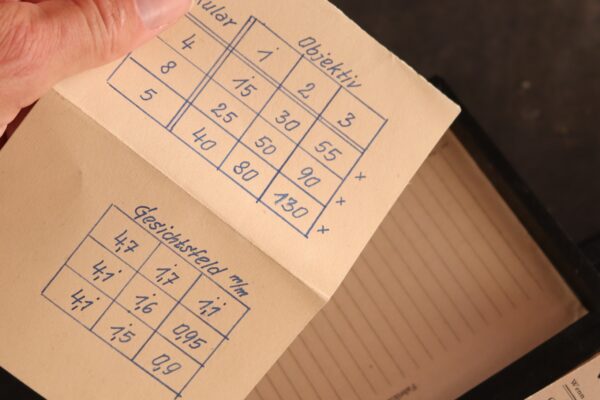 kular Objektiv
1 2 3
4 15 30 55 x
8 25 50 90 x
5 40 80 130 x
Gesichtsfeld m/m
4,7 1,7 1,1
4,1 1,6 0,95
4,1 1,5 0,9
Wenn